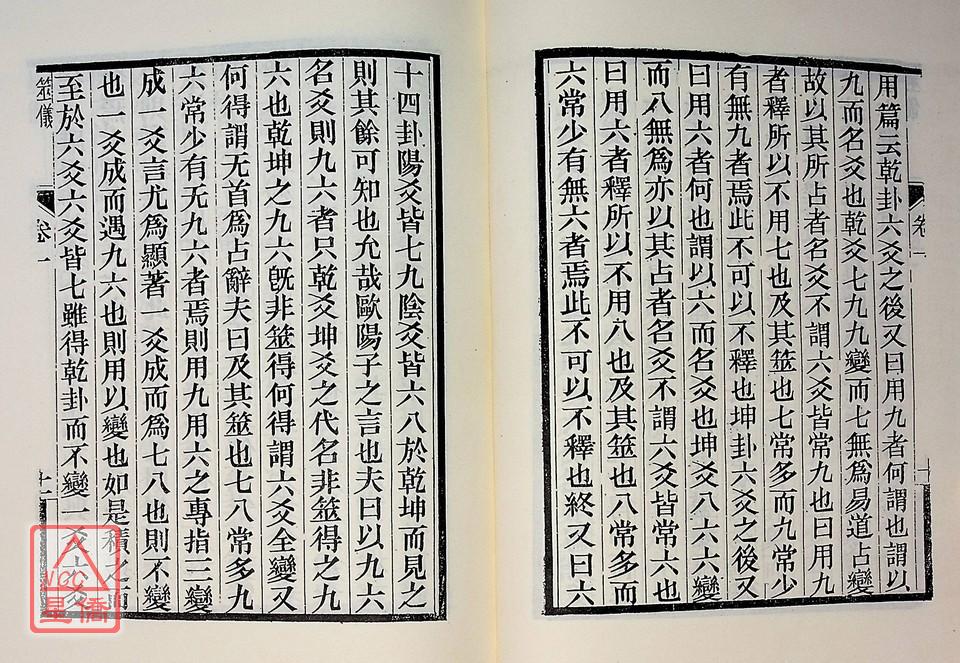 用篇云乾卦六爻之後又曰用九者何謂也謂以
九而名爻也乾爻七九九變而七無爲易道占變
故以其所占者名爻不謂六爻皆常九也曰用九
者釋所以不用七也及其筮也七常多而九常少
有無九者焉此不可以不釋也坤卦六爻之後又
曰用六者何也謂以六而名爻也坤爻八六六變
而八無爲亦以其占者名爻不謂六爻皆常六也
曰用六者釋所以不用八也及其筮也八常多而
六常少有無六者焉此不可以不釋也終又曰六
卷一
十
十四卦陽爻皆七九陰爻皆六八於乾坤而見之
則其餘可知也允哉歐陽子之言也夫曰以九六
名爻則九六者只乾爻坤爻之代名非筮得之九
六也乾坤之九六既非筮得何得謂六爻全變又
何得謂无首爲占辭夫曰及其筮也七八常多九
六常少有无九六者焉則用九用六之專指三變
成一爻言尤爲顯著一爻成而爲七八也則不變
也一爻成而遇九六也則用以變也如是積之而
至於六爻六爻皆七雖得乾卦而不變一爻
筮儀
卷一
十一
VCC
星僑